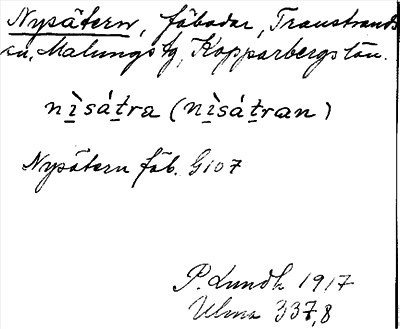 Nysätern, fäbodar, Transtrands
sn, Malungs tg, Kopparbergs län.
nìsátra (nìsátran)
Nysätern fäb. G107
P. Lundh 1917
Ulma 337,8